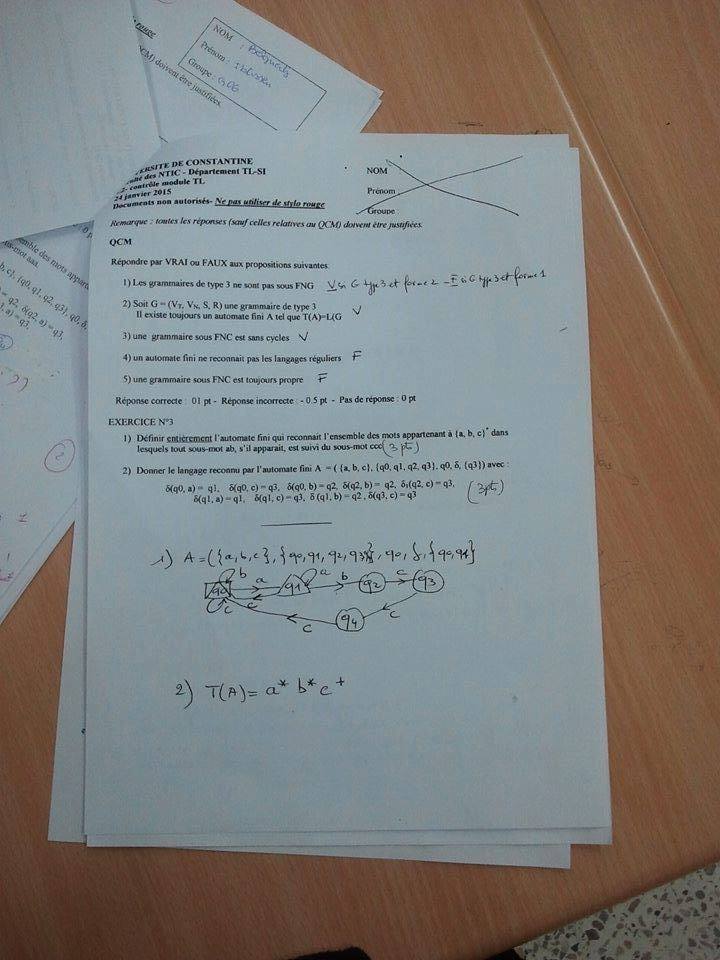 NOM :
Prénom :
Groupe :
doivent être justifiées.
ERSITE DE CONSTANTINE
des NTIC - Département TL-SI
contrôle module TL
24 janvier 2015
Documents non autorisés- Ne pas utiliser de stylo rouge
NOM
Prénom
Groupe
Remarque : toutes les réponses (sauf celles relatives au QCM) doivent être justifiées.
QCM
Répondre par VRAI ou FAUX aux propositions suivantes
1) Les grammaires de type 3 ne sont pas sous FNG V si G type 3 et forme 2 - F si G type 3 et forme 1
2) Soit G = (VT, VN, S, R) une grammaire de type 3
Il existe toujours un automate fini A tel que T(A)=L(G V
3) une grammaire sous FNC est sans cycles V
4) un automate fini ne reconnait pas les langages réguliers F
5) une grammaire sous FNC est toujours propre F
Réponse correcte : 01 pt - Réponse incorrecte : - 0.5 pt - Pas de réponse : 0 pt
EXERCICE N°3
1) Définir entièrement l'automate fini qui reconnait l'ensemble des mots appartenant à {a, b, c}* dans
lesquels tout sous-mot ab, s'il apparait, est suivi du sous-mot ccc (3 pts)
2) Donner le langage reconnu par l'automate fini A = ( {a, b, c}, {q0, q1, q2, q3}, q0, δ, {q3}) avec :
δ(q0, a) = q1, δ(q0, c) = q3, δ(q0, b) = q2, δ(q2, b) = q2, δ(q2, c) = q3,
δ(q1, a) = q1, δ(q1, c) = q3, δ (q1, b) = q2 , δ(q3, c) = q3
(3pts)
1) A = ({a, b, c}, {q0, q1, q2, q3}, q0, δ, {q0, q1}
b a
q0 a q1 b q2 c q3
c c
c q4 c
2) T(A) = a* b* c+